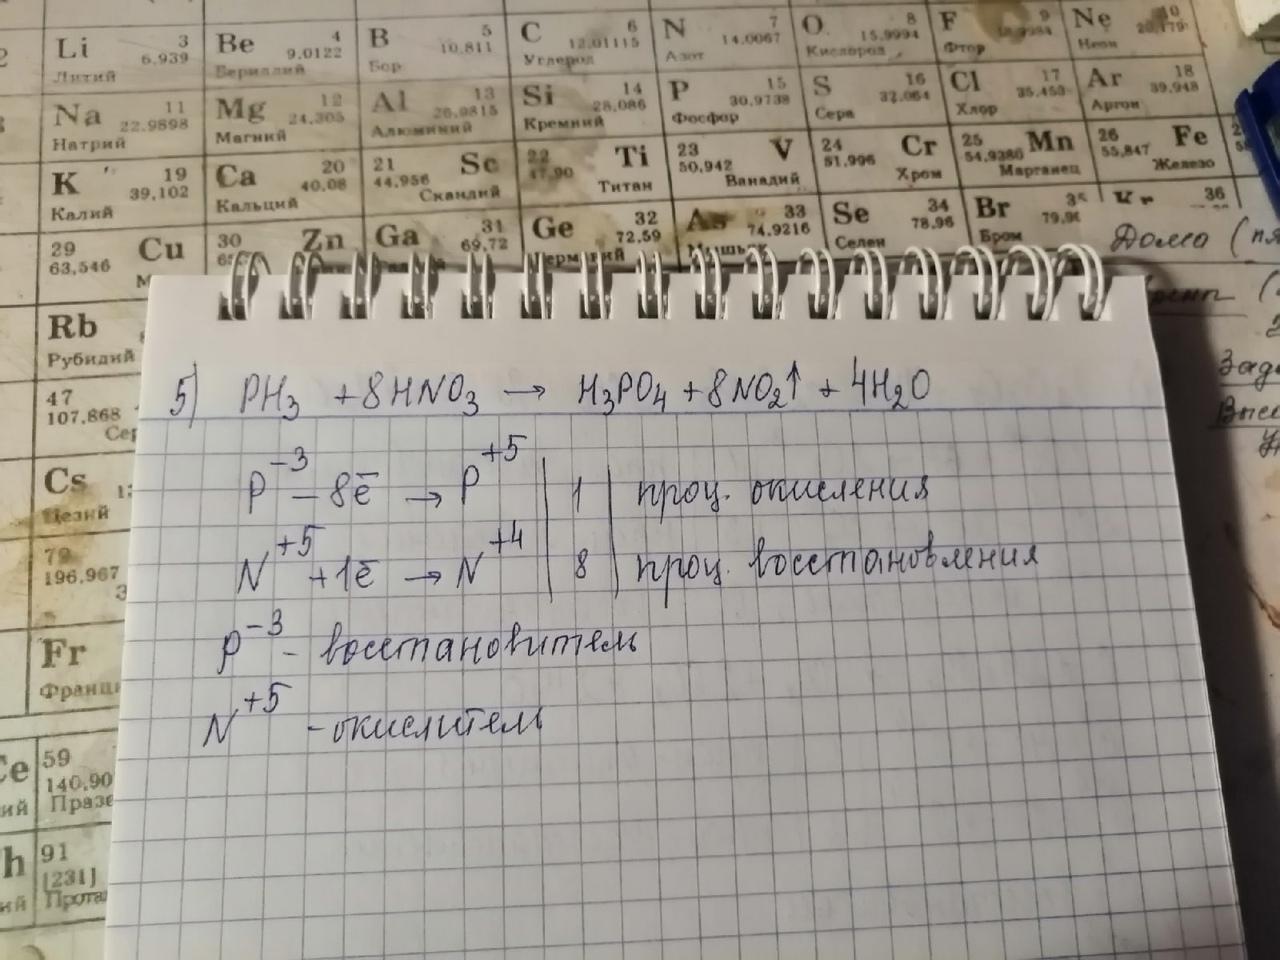 Li 3 6,939 Литий Be 4 9,0122 Бериллий B 5 10,811 Бор C 6 12,01115 Углерод N 7 14,0067 Азот O 8 15,9994 Кислород F 9 Фтор Ne 10 Неон
Na 11 22,9898 Натрий Mg 12 24,305 Магний Al 13 26,9815 Алюминий Si 14 28,086 Кремний P 15 30,9738 Фосфор S 16 32,064 Сера Cl 17 35,453 Хлор Ar 18 39,948 Аргон
K 19 39,102 Калий Ca 20 40,08 Кальций 21 Sc 44,956 Скандий 22 Ti 47,90 Титан 23 V 50,942 Ванадий 24 Cr 51,996 Хром 25 Mn 54,9380 Марганец 26 Fe 55,847 Железо
29 Cu 63,546 30 Zn Ga 31 69,72 Ge 32 72,59 As 33 74,9216 Мышьяк Se 34 78,96 Селен Br 79,90 Бром 36
Дома
Rb
Рубидий
47
107,868
Cs
Цезий
79
196,967
Fr
59
140,90
91
[231]
5) PH₃ + 8HNO₃ → H₃PO₄ + 8NO₂↑ + 4H₂O
P⁻³ – 8ē → P⁺⁵ | 1 | проц. окисления
N⁺⁵ + 1ē → N⁺⁴ | 8 | проц. восстановления
P⁻³ – восстановитель
N⁺⁵ – окислитель